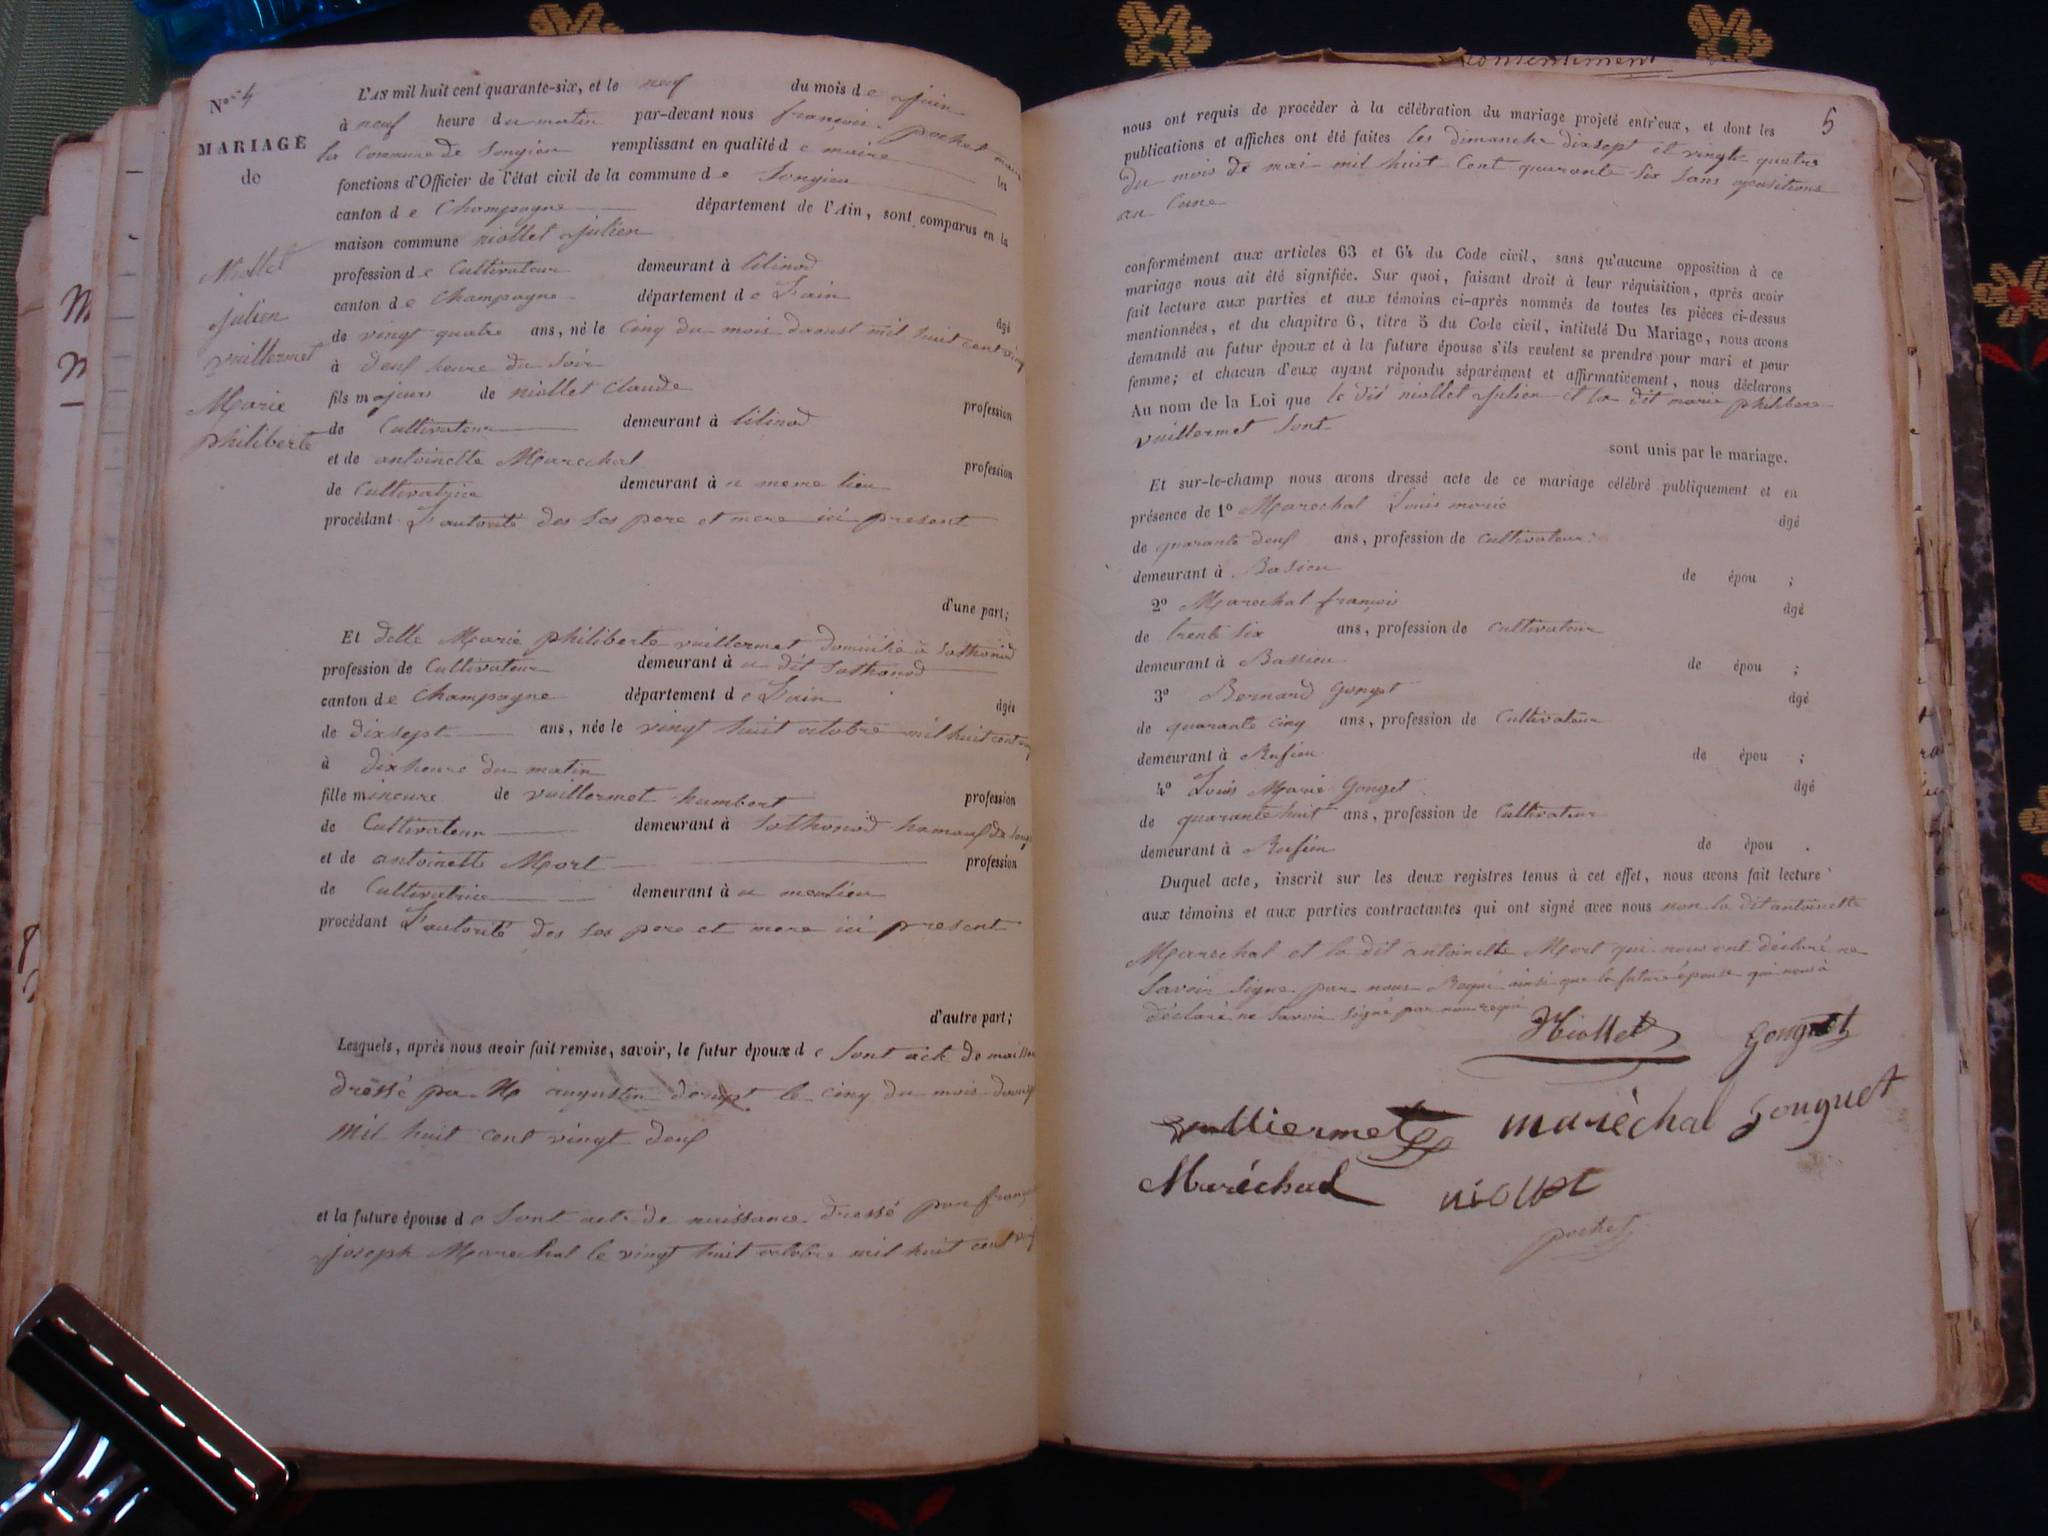 N° 4
MARIAGE
de
Niollet
Julien
vuillermet
Marie
philiberte
L'AN mil huit cent quarante-six, et le neuf du mois de Juin
à neuf heure du matin par-devant nous françois pochet maire
la Commune de Songieu remplissant en qualité de maire les
fonctions d'Officier de l'état civil de la commune de Songieu
canton de Champagne département de l'Ain, sont comparus en la
maison commune niollet Julien
profession de Cultivateur demeurant à lilinod
canton de Champagne département de L'ain âgé
de vingt quatre ans, né le Cinq du mois daoust mil huit cent ving
à deuf heure du Soir
fils majeurs de niollet Claude profession
de Cultivateur demeurant à lilinod
et de antoinette Marechal profession
de Cultivatrice demeurant à u meme lieu
procédant L'autorité des Ses pere et mere ici present
d'une part;
Et delle Marie philiberte vuillermet domicilié à Sothonod
profession de Cultivateur demeurant à u dit Sothonod
canton de Champagne département de L'ain âgée
de dixsept ans, née le vingt huit octobre mil huit cent ving
à dix heure du matin
fille mineure de vuillermet humbert profession
de Cultivateur demeurant à Sothonod hamauf de Song
et de antoinette Mort profession
de Cultivatrice demeurant à u merlieu
procédant L'autorité des Ses pere et mere ici present
d'autre part;
Lesquels, après nous avoir fait remise, savoir, le futur époux de Sont acte de
dressé par M augustin le cinq du mois daoust
Mil huit cent vingt deuf
et la future épouse de Sont acte de naissance dressé par franç
joseph Marechal le vingt huit octobre mil huit cent ving
Consentiment
5
nous ont requis de procéder à la célébration du mariage projeté entr'eux, et dont les
publications et affiches ont été faites les dimanche dixsept et vingte quatre
du mois de mai mil huit Cent quarante Six Sans opositions
au Cune
conformément aux articles 63 et 64 du Code civil, sans qu'aucune opposition à ce
mariage nous ait été signifiée. Sur quoi, faisant droit à leur réquisition, après avoir
fait lecture aux parties et aux témoins ci-après nommés de toutes les pièces ci-dessus
mentionnées, et du chapitre 6, titre 5 du Code civil, intitulé Du Mariage, nous avons
demandé au futur époux et à la future épouse s'ils veulent se prendre pour mari et pour
femme; et chacun d'eux ayant répondu séparément et affirmativement, nous déclarons
Au nom de la Loi que le dit niollet Julien et la dit marie philibere
vuillermet Sont
sont unis par le mariage.
Et sur-le-champ nous avons dressé acte de ce mariage célébré publiquement et en
présence de 1° Marechal Louis marie âgé
de quarante deuf ans, profession de Cultivateur
demeurant à Basieu de épou ;
2° Marechal françois âgé
de trente Six ans, profession de Cultivateur
demeurant à Bassieu de épou ;
3° Bernard Gonguet âgé
de quarante cinq ans, profession de Cultivateur
demeurant à Rufieu de épou ;
4° Louis Marie Gonguet âgé
de quarante huit ans, profession de Cultivateur
demeurant à Rufieu de épou .
Duquel acte, inscrit sur les deux registres tenus à cet effet, nous avons fait lecture
aux témoins et aux parties contractantes qui ont signé avec nous non la dit antoinette
Marechal et la dit antoinette Mort qui nous ont déclaré ne
Savoir Signe par nous Requi ainsi que la future épouse qui nous à
déclaré ne Savoir Signé par nous requi
Niollet Gonguet
vulliermet maréchal Gonguet
Maréchal niollet
pochet